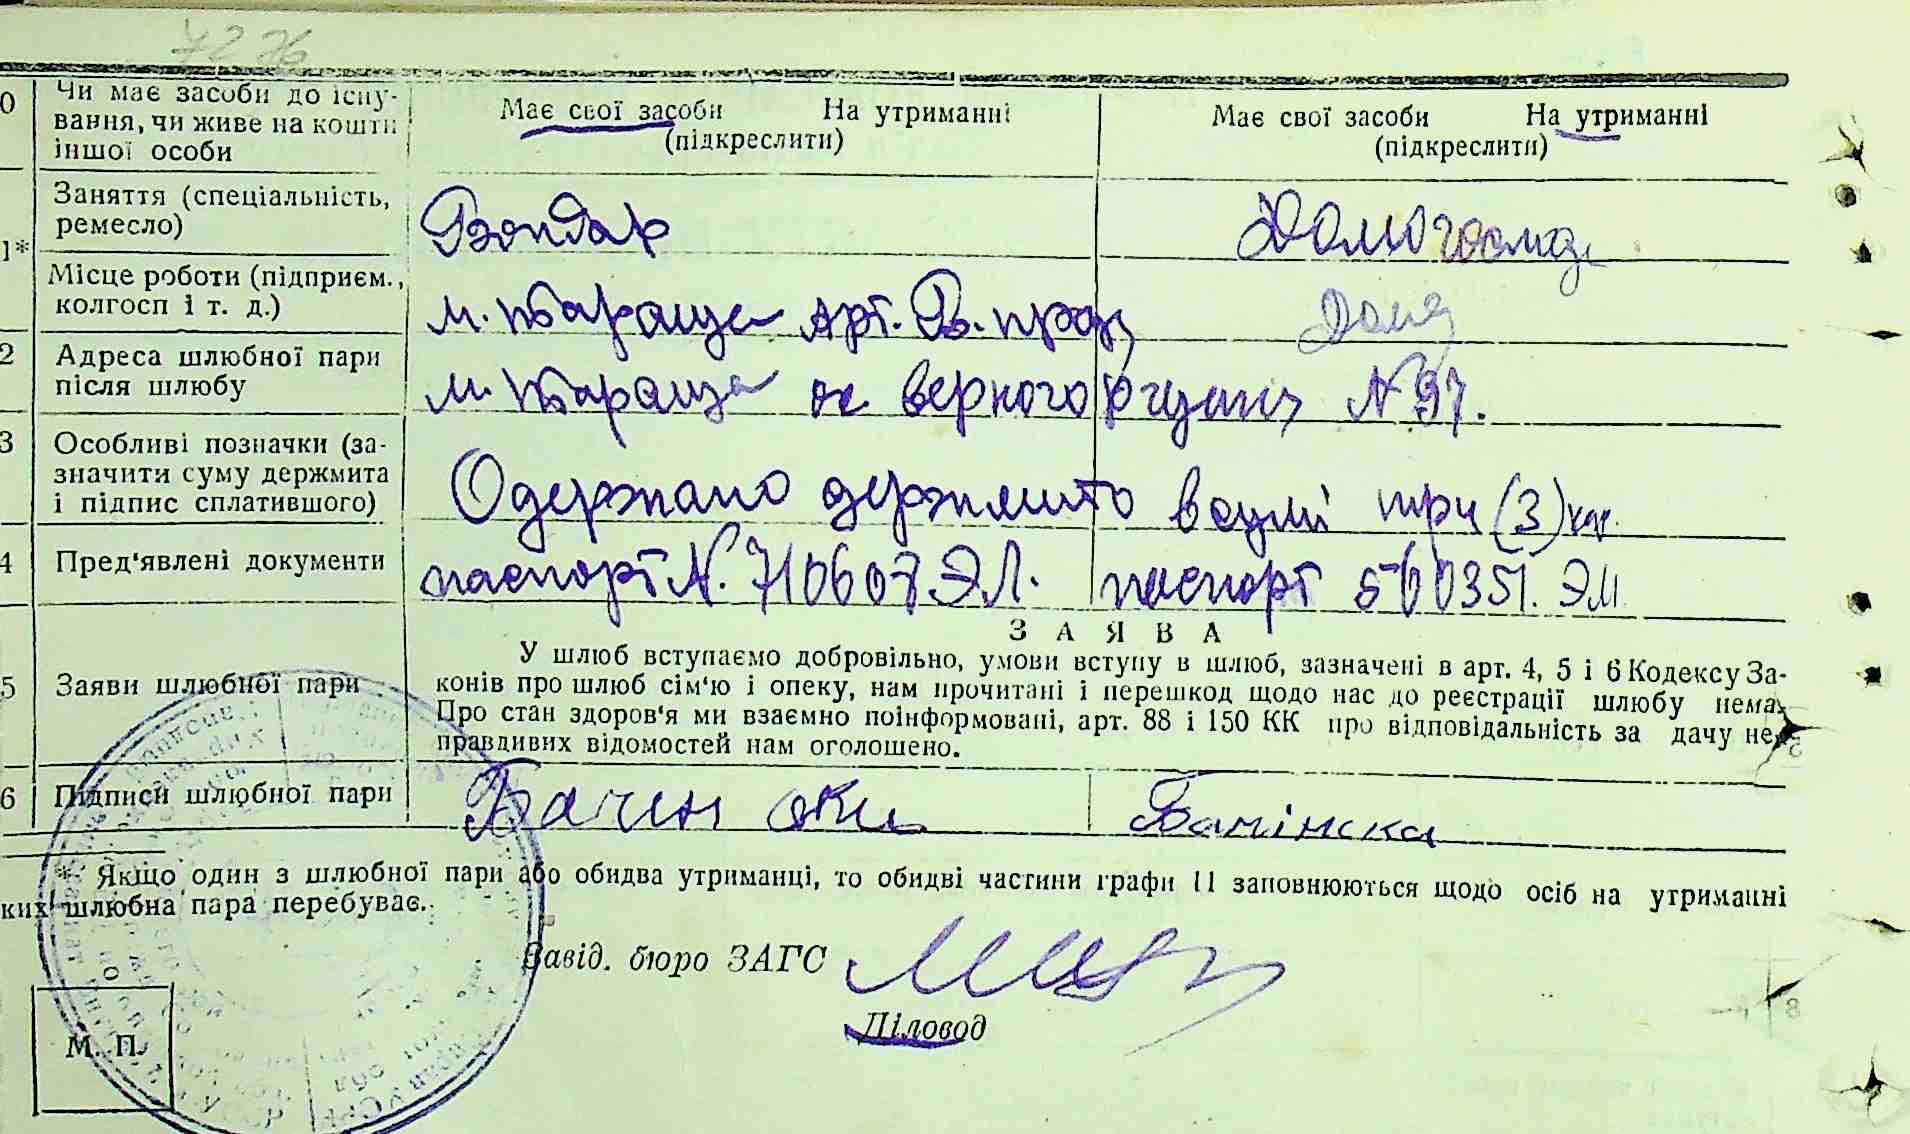 7276
0 Чи має засоби до існу-
вання, чи живе на кошти
іншої особи
Має свої засоби На утриманні
(підкреслити)
Має свої засоби На утриманні
(підкреслити)
1* Заняття (спеціальність,
ремесло)
Бондар
Домогоспод.
Місце роботи (підприєм.,
колгосп і т. д.)
м. Тараща Арт. В. прац
Дома
2 Адреса шлюбної пари
після шлюбу
м. Тараща верного №97.
3 Особливі позначки (за-
значити суму держмита
і підпис сплатившого)
Одержано держмито в сумі три (3) кар.
4 Пред'явлені документи
паспорт N. 710607 ЭЛ.
паспорт 560351. ЭМ
5 Заяви шлюбної пари
ЗАЯВА
У шлюб вступаємо добровільно, умови вступу в шлюб, зазначені в арт. 4, 5 і 6 Кодексу За-
конів про шлюб сім'ю і опеку, нам прочитані і перешкод щодо нас до реєстрації шлюбу нема.
Про стан здоров'я ми взаємно поінформовані, арт. 88 і 150 КК про відповідальність за дачу не-
правдивих відомостей нам оголошено.
6 Підписи шлюбної пари
Бачински
Бачінска
* Якщо один з шлюбної пари або обидва утриманці, то обидві частини графи 11 заповнюються щодо осіб на утриманні
ких шлюбна пара перебуває.
Завід. бюро ЗАГС
Діловод
М. П.